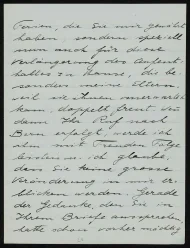 Ferien, die Sie mir gewährt
haben, sondern speziell
nun auch für diese
Verlängerung des Aufent-
haltes zu Hause, die be-
sonders meine Eltern,
weil sie Ihnen
doppelt freut
dem Ihr Ruf nach
Bern erfolgt, werde ich
ihm mit Freuden Folge
leisten u. ich glaube,
dass Sie keine grosse
Veränderung in mir er-
blicken werden. Gerade
der Gedanke, den Sie in
Ihrem Briefe aussprachen,
hatte schon vorher mich